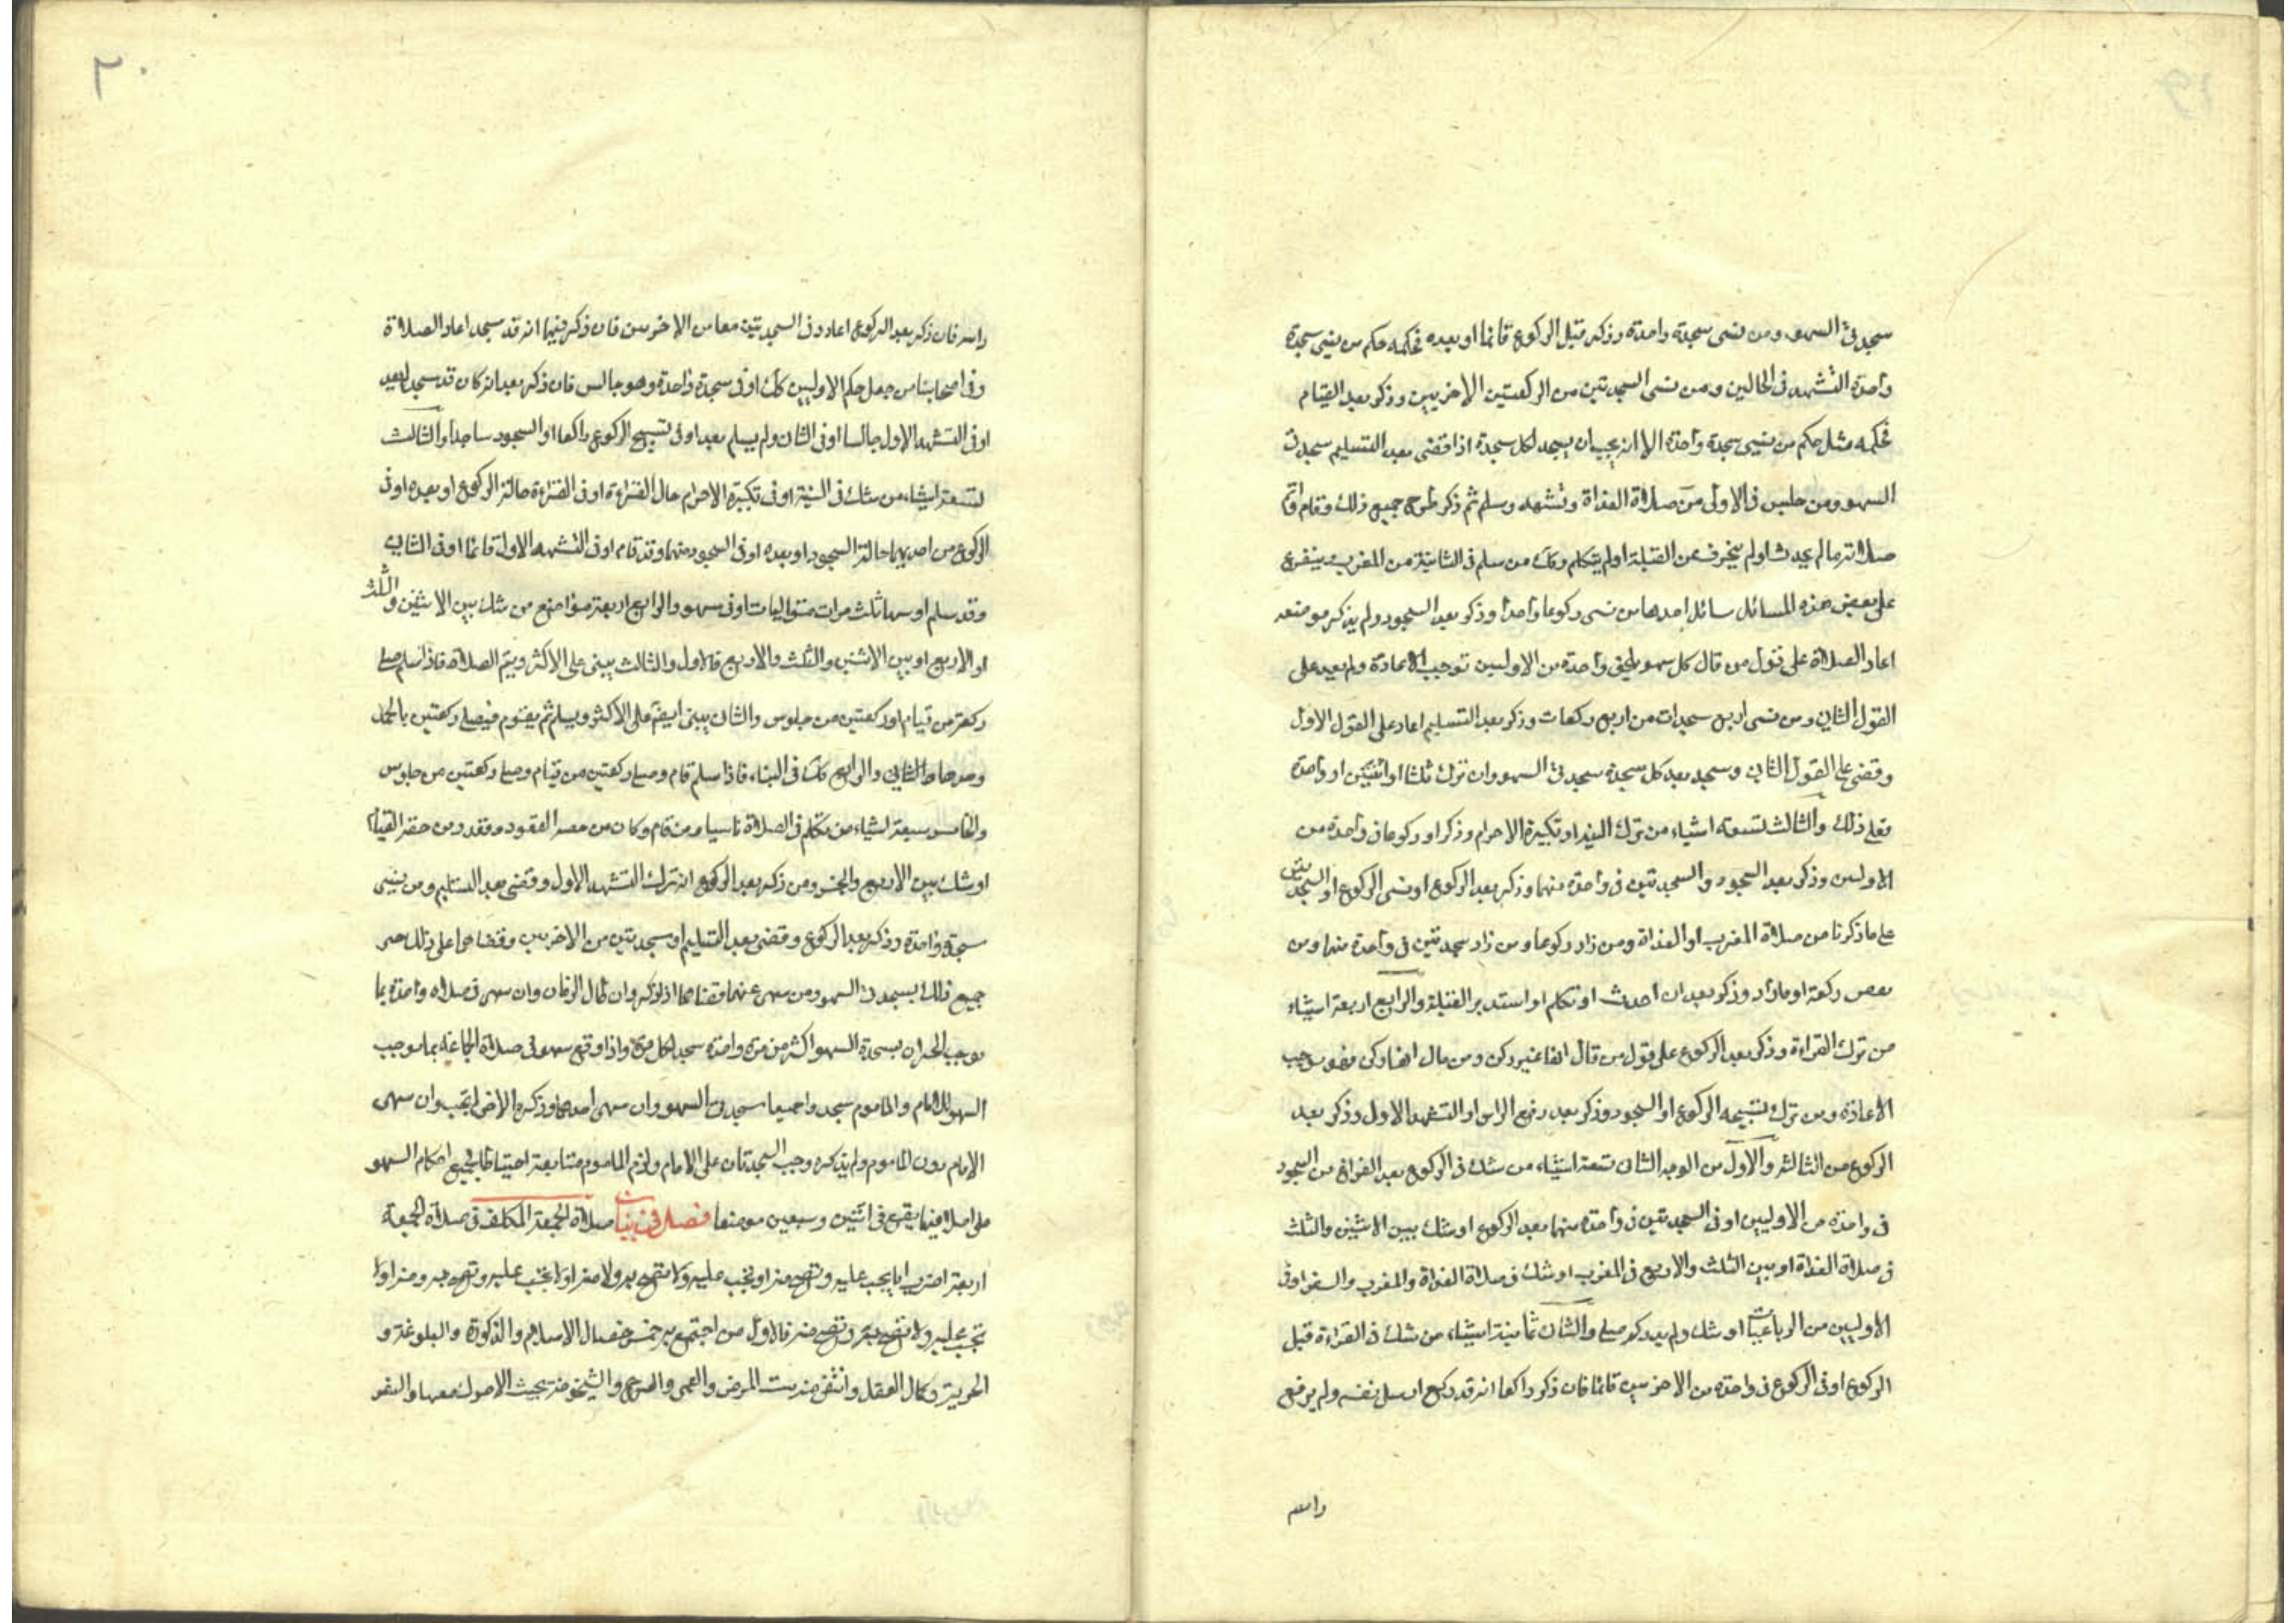 سجدتى السهو ومن نسى سجدة واحدة وذكر قبل الركوع قائما او بعده فحكمه حكم من نسى سجدة
واحدة التشهد فى الحالين ومن نسى السجدتين من الركعتين الاخريين وذكر بعد القيام
فحكمه مثل حكم من نسى سجدة واحدة الا انه يجب ان يسجد لكل سجدة اذا قضى بعد التسليم سجدتى
السهو ومن جلس فى الاولى من صلاة الغداة وتشهد وسلم ثم ذكر طرح جميع ذلك وقام
صلاته ما لم يحدث او لم ينحرف عن القبلة او لم يتكلم وكك من سلم فى الثانية من المغرب يتفرع
على بعض هذه المسائل سائل احدها من نسى ركوعا واحدا وذكر بعد السجود ولم يذكر موضعه
اعاد الصلاة على قول من قال كل سهو يلحق واحدة من الاوليين توجب الاعادة ولم يعد على
القول الثانى ومن نسى اربع سجدات من اربع ركعات وذكر بعد التسليم اعاد على القول الاول
وقضى على القول الثانى وسجد بعد كل سجدة سجدتى السهو وان ترك ثلثا او اثنتين او واحدة
فعلى ذلك والثالث لتسعة اشياء من ترك النية او تكبيرة الاحرام وذكر او ركوعا فى واحدة من
الاوليين وذكر بعد السجود والسجدتين فى واحدة منهما وذكر بعد الركوع او نسى الركوع او السجدتين
على ما ذكرنا من صلاة المغرب او الغداة ومن زاد ركوعا ومن زاد سجدتين فى واحدة منهما ومن
نقص ركعة او مازاد وذكر بعد ان احدث او تكلم او استدبر القبلة والرابع اربعة اشياء
من ترك القراءة وذكر بعد الركوع على قول من قال انها غير ركن ومن قال انها ركن فهو يوجب
الاعادة ومن ترك تسبيحه الركوع او السجود وذكر بعد رفع الراس او التشهد الاول وذكر بعد
الركوع من الثالثة والاول من الوجه الثانى تسعة اشياء من شك فى الركوع بعد الفراغ من السجود
فى واحدة من الاوليين او فى السجدتين فى واحدة منهما بعد الركوع او شك بين الاثنين والثلث
فى صلاة الغداة او بين الثلث والاربع فى المغرب او شك فى صلاة الغداة والمغرب والسفر او فى
الاوليين من الرباعيات او شك ولم يدر كم صلى والثانى ثمانية اشياء من شك فى القراءة قبل
الركوع او فى الركوع فى واحدة من الاخريين قائما فان ذكر راكعا انه قد ركع ارسل نفسه ولم يرفع
راسه
٢٠
راسه فان ذكر بعد الركوع اعاد وفى السجدتين معا من الاخريين فان ذكر فيهما انه قد سجد اعاد الصلاة
وفى اصحابنا من جعل حكم الاوليين كك او فى سجدة واحدة وهو جالس فان ذكر بعد انه كان قد سجد لم يعد
او فى التشهد الاول جالسا او فى الثانى ولم يسلم بعد او فى تسبيح الركوع راكعا او السجود ساجدا والثالث
لتسعة اشياء من شك فى النية او فى تكبيرة الاحرام حال القراءة او فى القراءة حالة الركوع او بعده او فى
الركوع من احديهما حالة السجود او بعده او فى السجود منهما وقد قام او فى التشهد الاول قائما او فى الثانى
وقد سلم او سها ثلث مرات متواليات او فى سهو والرابع اربعة مواضع من شك بين الاثنين والثلث
او الاربع او بين الاثنين والثلث والاربع فالاول والثالث يبنى على الاكثر ويتم الصلاة فاذا سلم صلى
ركعة من قيام او ركعتين من جلوس والثانى يبنى ايضا على الاكثر ويسلم ثم يقوم فيصلى ركعتين بالحمد
وحدها والرابع كك فى البناء فاذا سلم قام وصلى ركعتين من قيام وصلى ركعتين من جلوس
والخامس سبعة اشياء من تكلم فى الصلاة ناسيا ومن قام وكان من حقه القعود وقعد ومن حقه القيام
او شك بين الاربع والخمس ومن ذكر بعد الركوع انه ترك التشهد الاول وقضى بعد التسليم ومن نسى
سجدة واحدة وذكر بعد الركوع وقضى بعد التسليم او سجدتين من الاخريين وقضاهما على ذلك
جميع ذلك يسجد سجدتى السهو ومن سهى عنهما قضاهما اذا ذكر وان طال الزمان وان سهى فى صلاة واحدة بما
يوجب الجبران بسجدة السهو اكثر من مرة واحدة سجد لكل مرة واذا وقع سهو فى صلاة الجماعة بما يوجب
السهو للامام والماموم سجدوا جميعا سجدتى السهو وان سهى احدهما وذكره الاخر لم يجب وان سهى
الامام دون الماموم ولم يذكره وجب السجدتان على الامام ولزم الماموم متابعته احتياطا فجميع احكام السهو
على اصلا فيما يقع فى اثنين وسبعين موضعا فصل فى بيان صلاة الجمعة المكلف فى صلاة الجمعة
اربعة اضرب اما يجب عليه وتصح منه او تجب عليه ولا تصح به ولا منه او لا يجب عليه وتصح به ومنه او لا
تجب عليه ولا تصح به وتصح منه فالاول من اجتمع به خمس خصال الاسلام والذكورة والبلوغة و
الحرية وكمال العقل وانتفى منه ست المرض والعمى والعرج والشيخوخة بحيث لا حراك معها والسفر